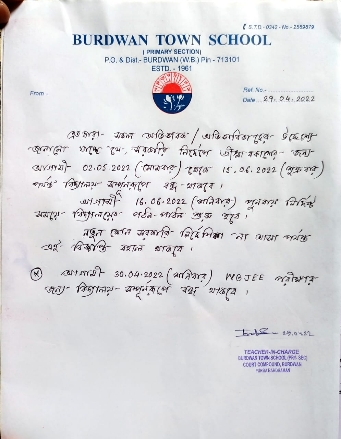 S.T.D - 0342 - No - 2559879
BURDWAN TOWN SCHOOL
( PRIMARY SECTION)
P.O. & Dist.- BURDWAN (W.B.) Pin - 713101
ESTD. - 1961
From -
Ref. No.-
Date : 29.04.2022
এতদ্বারা সকল অভিভাবক / অভিভাবিকাদের উদ্দেশ্যে
জানানো যাচ্ছে যে, সরকারি নির্দেশে গ্রীষ্মাবকাশের জন্য
আগামী 02.05.2022 (সোমবার) থেকে 15.06.2022
পর্যন্ত বিদ্যালয় সম্পূর্ণরূপে বন্ধ থাকবে।
আগামী 16.06.2022 পুনরায় নির্দিষ্ট
সময়ে বিদ্যালয়ের পঠন-পাঠন শুরু হবে।
নতুন কোন সরকারি নির্দেশিকা না আসা পর্যন্ত
এই বিজ্ঞপ্তি বহাল থাকবে।
আগামী 30.04.2022 (শনিবার) WBJEE পরীক্ষার
জন্য বিদ্যালয় সম্পূর্ণরূপে বন্ধ থাকবে।
TEACHER-IN-CHARGE
BURDWAN TOWN SCHOOL (PRY. SEC)
COURT COMPOUND, BURDWAN